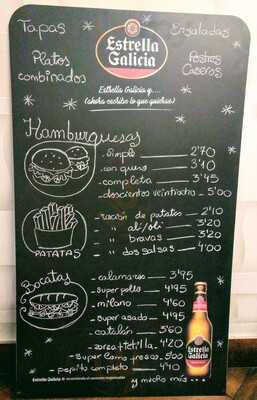 Tapas
Ensaladas
Estrella
Galicia
Platos
combinados
Postres
Caseros
Estrella Galicia y....
(ahora escribe lo que quieras)
Hamburguesas
simple 2'70
con queso 3'10
completa 3'45
doscientos veinticuatro 5'00
PATATAS
ración de patatas 2'10
" ali/oli 3'20
" bravas 3'20
" dos salsas 4'00
Bocatas
calamares 3'95
super pollo 4'95
milano 4'60
super asado 4'95
catalán 5'60
zorza + tetilla 4'20
super lomo fresco 5'00
pepito completo 4'40
y mucho más...
Estrella
Galicia
Estrella Galicia